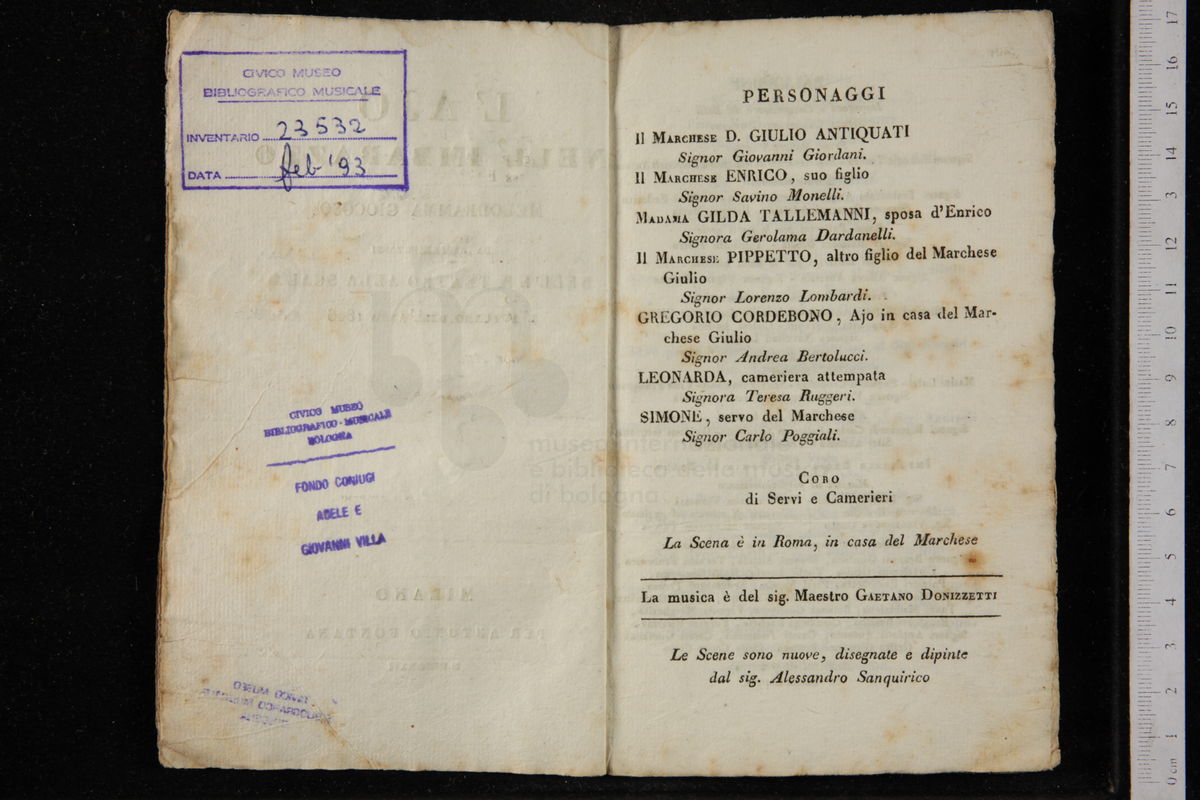 CIVICO MUSEO
BIBLIOGRAFICO MUSICALE
INVENTARIO 23532
DATA feb '93
CIVICO MUSEO
BIBLIOGRAFICO-MUSICALE
BOLOGNA
FONDO CONIUGI
ADELE E
GIOVANNI VILLA
PERSONAGGI
Il MARCHESE D. GIULIO ANTIQUATI
Signor Giovanni Giordani.
Il MARCHESE ENRICO, suo figlio
Signor Savino Monelli.
MADAMA GILDA TALLEMANNI, sposa d'Enrico
Signora Gerolama Dardanelli.
Il MARCHESE PIPPETTO, altro figlio del Marchese
Giulio
Signor Lorenzo Lombardi.
GREGORIO CORDEBONO, Ajo in casa del Mar-
chese Giulio
Signor Andrea Bertolucci.
LEONARDA, cameriera attempata
Signora Teresa Ruggeri.
SIMONE, servo del Marchese
Signor Carlo Poggiali.
CORO
di Servi e Camerieri
La Scena è in Roma, in casa del Marchese
La musica è del sig. Maestro GAETANO DONIZZETTI
Le Scene sono nuove, disegnate e dipinte
dal sig. Alessandro Sanquirico
museo internazionale
e biblioteca della musica
di bologna
0 cm 1 2 3 4 5 6 7 8 9 10 11 12 13 14 15 16 17